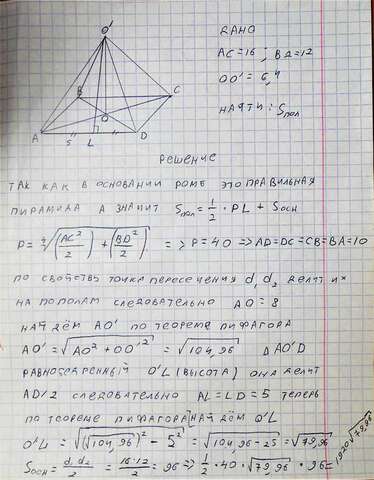 O'
B
C
O
A
5
L
D
ДАНО
AC=16; BD=12
OO'=6,4
НАЙТИ: Sпол
РЕШЕНИЕ
ТАК КАК В ОСНОВАНИИ РОМБ ЭТО ПРАВИЛЬНАЯ
ПИРАМИДА А ЗНАЧИТ Sпол = 1/2 · PL + Sосн
P = 4√((AC²/2) + (BD²/2)) => P = 40 => AD=DC=CB=BA=10
ПО СВОЙСТВУ ТОЧКА ПЕРЕСЕЧЕНИЯ d₁ d₂ ДЕЛИТ ИХ
НА ПОПОЛАМ СЛЕДОВАТЕЛЬНО AO = 8
НАЙДЁМ AO' ПО ТЕОРЕМЕ ПИФАГОРА
AO' = √(AO² + OO'²) = √104,96 △AO'D
РАВНОБЕДРЕННЫЙ O'L (ВЫСОТА) ОНА ДЕЛИТ
AD/2 СЛЕДОВАТЕЛЬНО AL = LD = 5 ТЕПЕРЬ
ПО ТЕОРЕМЕ ПИФАГОРА НАЙДЁМ O'L
O'L = √((√104,96)² - 5²) = √(104,96 - 25) = √79,96
Sосн = d₁d₂/2 = 16·12/2 = 96 => 1/2 · 40 · √79,96 · 96 = 1920√79,96